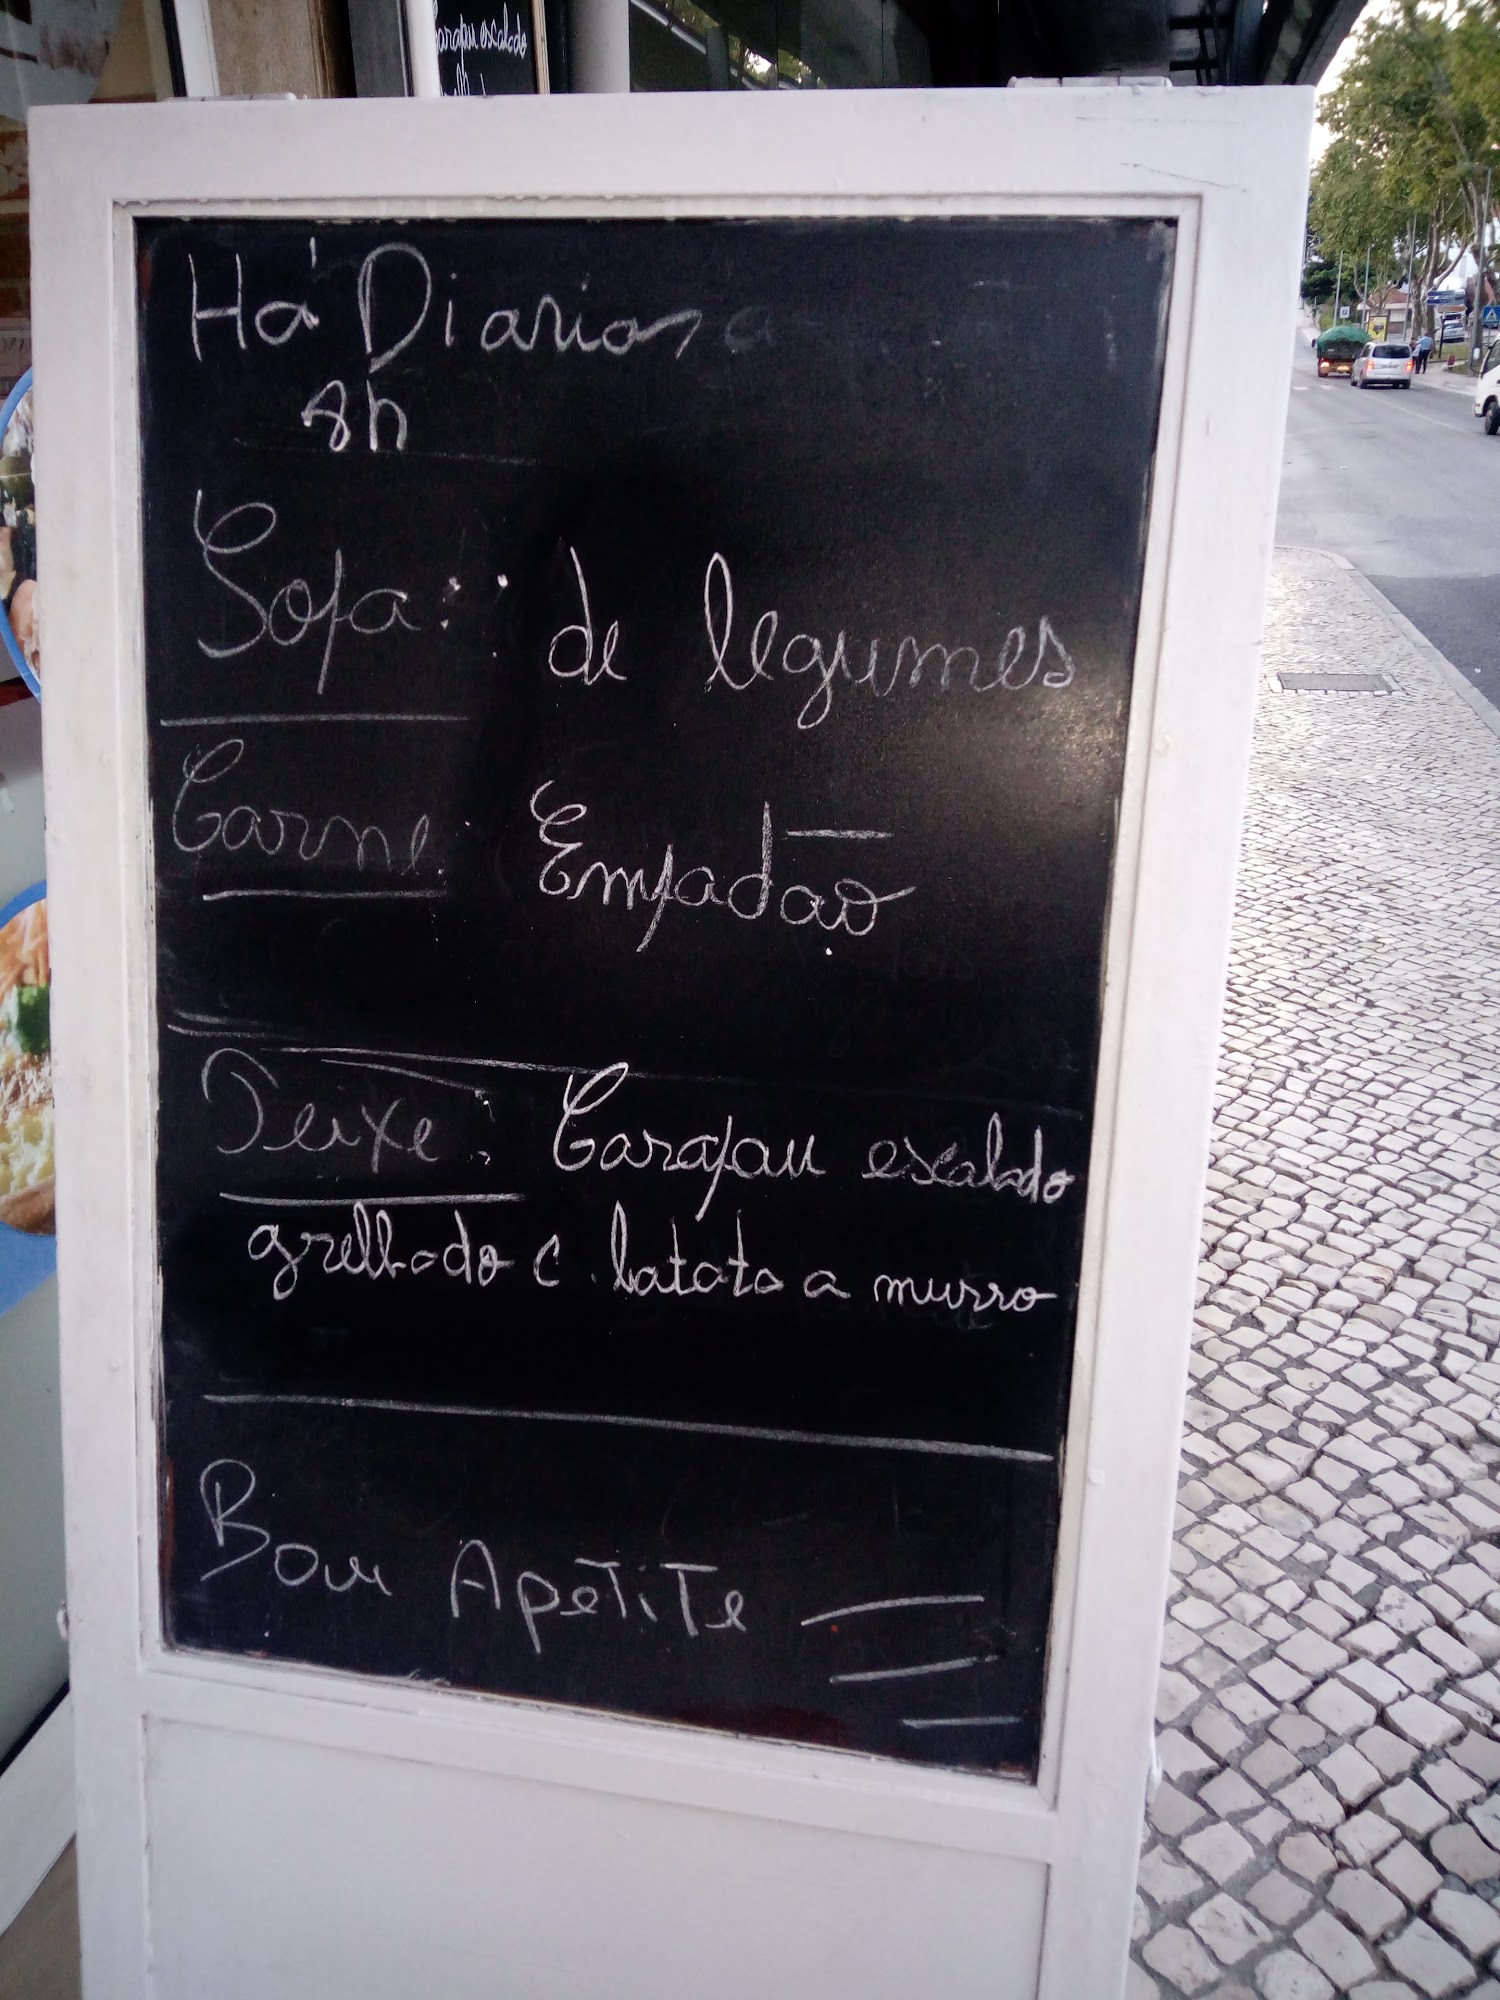 Carapau escalado
Há Diarias
8h
Sopa: de legumes
Carne: Empadão
Peixe: Carapau escalado
grelhado c. batata a murro
Bom Apetite